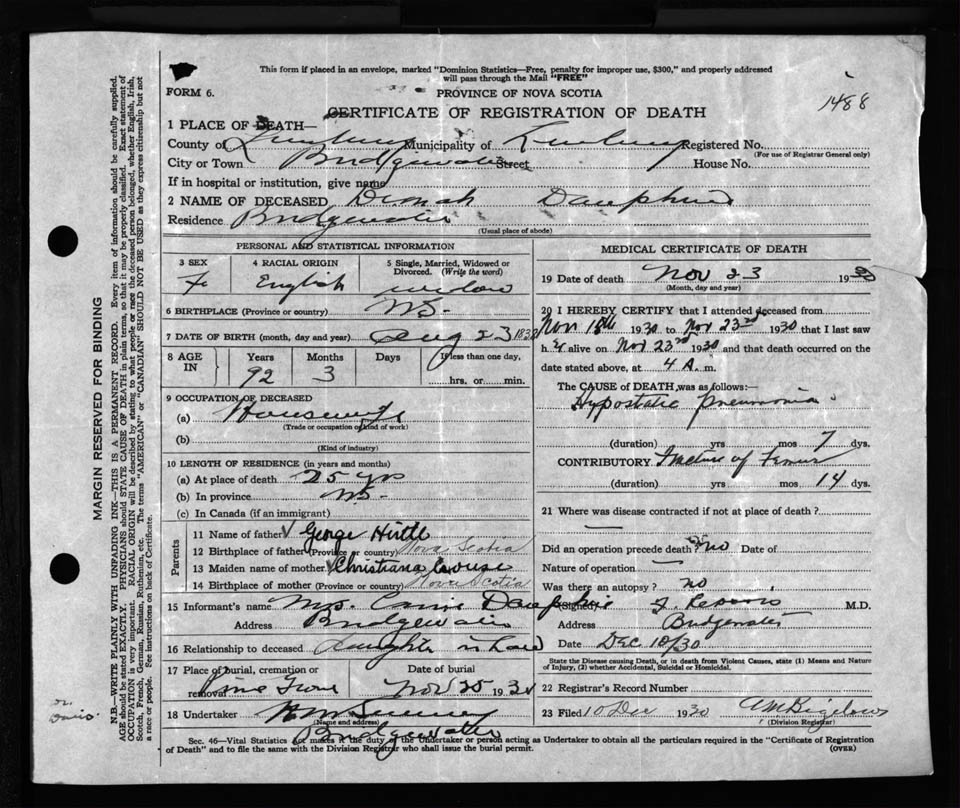 This form if placed in an envelope, marked "Dominion Statistics—Free, penalty for improper use, $300," and properly addressed
will pass through the Mail "FREE"
FORM 6.
PROVINCE OF NOVA SCOTIA
1488
CERTIFICATE OF REGISTRATION OF DEATH
1 PLACE OF DEATH—
County of Lunenburg Municipality of Lunenburg Registered No.
(For use of Registrar General only)
City or Town Bridgewater Street House No.
If in hospital or institution, give name
2 NAME OF DECEASED Dinah Dauphinee
Residence Bridgewater
(Usual place of abode)
PERSONAL AND STATISTICAL INFORMATION
3 SEX 4 RACIAL ORIGIN 5 Single, Married, Widowed or Divorced. (Write the word)
Fe English widow
6 BIRTHPLACE (Province or country) NS.
7 DATE OF BIRTH (month, day and year) Aug 23 1838
8 AGE IN Years Months Days If less than one day,
92 3 hrs. or min.
9 OCCUPATION OF DECEASED
(a) Housewife
(Trade or occupation or kind of work)
(b)
(Kind of industry)
10 LENGTH OF RESIDENCE (in years and months)
(a) At place of death 25 yrs
(b) In province NS.
(c) In Canada (if an immigrant)
Parents
11 Name of father George Hirtle
12 Birthplace of father (Province or country) Nova Scotia
13 Maiden name of mother Christiana
14 Birthplace of mother (Province or country) Nova Scotia
15 Informant's name Mrs. Annie Dauphinee
Address Bridgewater
16 Relationship to deceased daughter in law
17 Place of burial, cremation or removal Pine Grove
Date of burial Nov 25 1930
18 Undertaker
(Name and address)
Bridgewater
MEDICAL CERTIFICATE OF DEATH
19 Date of death Nov 23 1930
(Month, day and year)
20 I HEREBY CERTIFY that I attended deceased from
Nov 18th 1930 to Nov 23rd 1930 that I last saw
h er alive on Nov 23rd 1930 and that death occurred on the
date stated above, at 4 A. m.
The CAUSE OF DEATH was as follows:—
Hypostatic Pneumonia
(duration) yrs mos 7 dys.
CONTRIBUTORY Fracture of Femur
(duration) yrs mos 14 dys.
21 Where was disease contracted if not at place of death?
Did an operation precede death? no Date of
Nature of operation
Was there an autopsy? no
(Signed) M.D.
Address Bridgewater
Date Dec 10/30
State the Disease causing Death, or in death from Violent Causes, state (1) Means and Nature
of Injury, (2) whether Accidental, Suicidal or Homicidal.
22 Registrar's Record Number
23 Filed 10 Dec 1930
(Division Registrar)
Sec. 46—Vital Statistics Act makes it the duty of the Undertaker or person acting as Undertaker to obtain all the particulars required in the "Certificate of Registration
of Death" and to file the same with the Division Registrar who shall issue the burial permit.
(OVER)
MARGIN RESERVED FOR BINDING
N.B.—WRITE PLAINLY WITH UNFADING INK—THIS IS A PERMANENT RECORD. Every item of information should be carefully supplied.
AGE should be stated EXACTLY. PHYSICIANS should STATE CAUSE OF DEATH in plain terms, so that it may be properly classified. Exact statement of
OCCUPATION is very important. RACIAL ORIGIN will be described by stating to what people or race the deceased person belonged, whether English, Irish,
Scotch, French, German, Russian, Ruthenian, etc. The terms "AMERICAN" or "CANADIAN" SHOULD NOT BE USED as they express citizenship but not
a race or people. See instructions on back of Certificate.